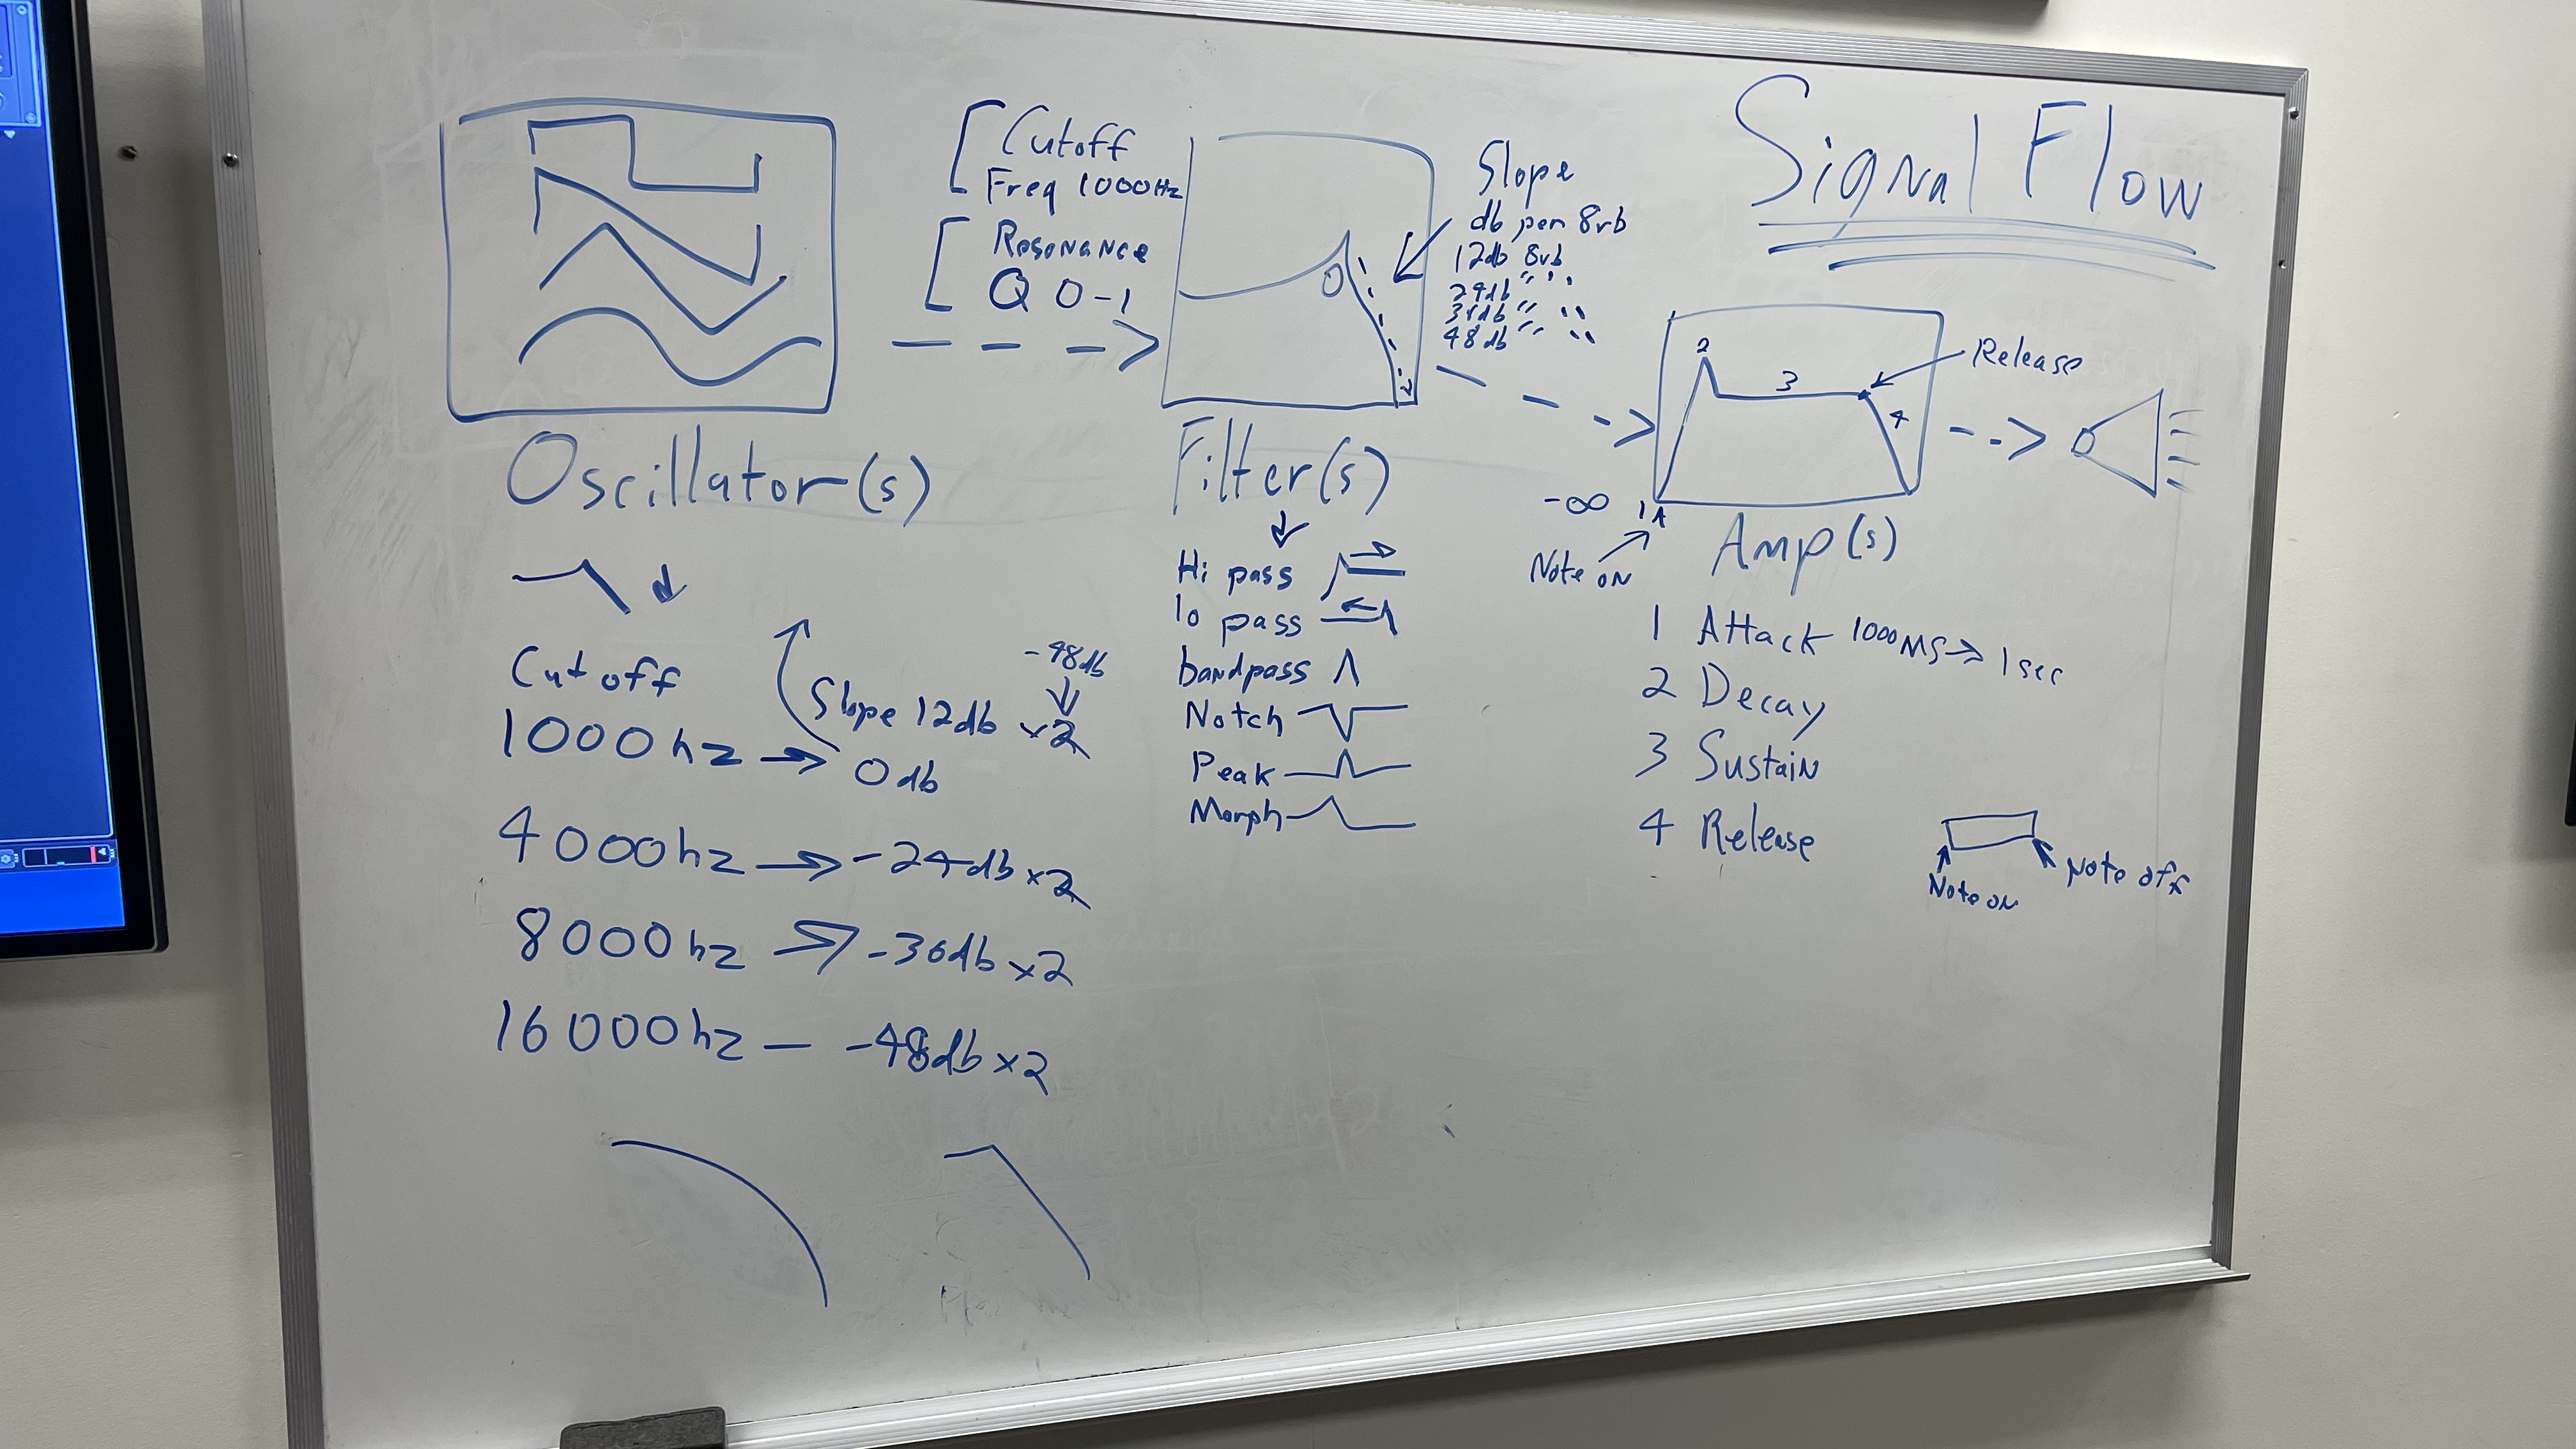 Signal Flow
Cutoff
Freq 1000Hz
Resonance
Q 0-1
Slope
db per 8vb
12db 8vb
24db " "
36db " "
48db " "
0
Oscillator(s)
Cutoff
1000hz → 0db
Slope 12db x2
-48db
4000hz → -24db x2
8000hz → -36db x2
16000hz — -48db x2
Filter(s)
Hi pass
lo pass
bandpass
Notch
Peak
Morph
2
3
4
Release
-∞
1A
Note on
Amp(s)
1 Attack 1000ms → 1sec
2 Decay
3 Sustain
4 Release
Note on
Note off